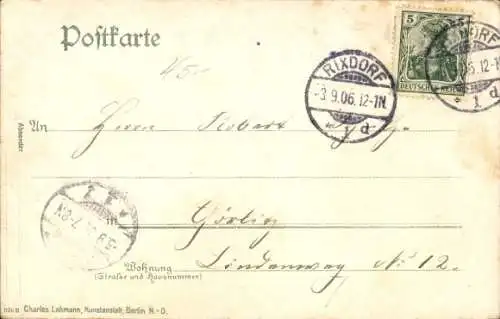 Postkarte
5
DEUTSCHES REICH
RIXDORF
-3.9.06.12-1N.
1 d
1 d
Absender
An Herrn Robert
in Görlitz
Wohnung
(Straße und Hausnummer)
Lindenweg No 12.
Charles Lehmann, Kunstanstalt, Berlin N.-O.